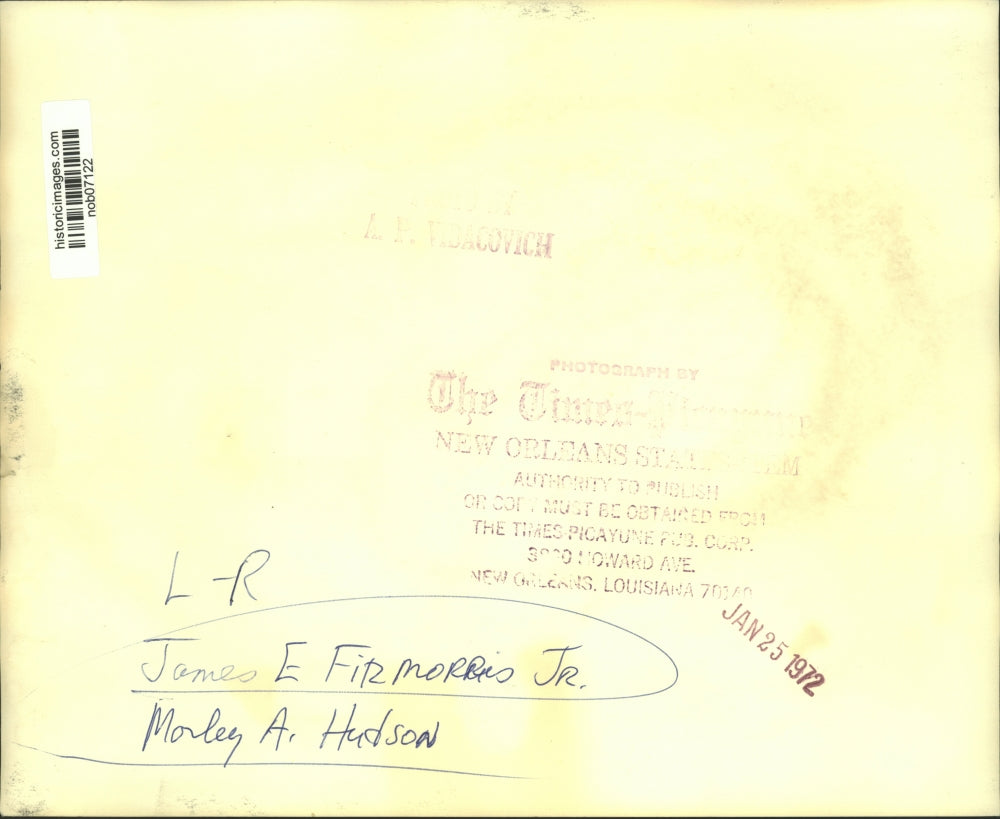 historicimages.com
nob07122
A. P. VIDACOVICH
PHOTOGRAPH BY
The Times-Picayune
NEW ORLEANS STATES-ITEM
AUTHORITY TO PUBLISH
OR COPY MUST BE OBTAINED FROM
THE TIMES-PICAYUNE PUB. CORP.
HOWARD AVE.
NEW ORLEANS, LOUISIANA 70140
JAN 25 1972
L-R
James E Fitzmorris Jr.
Morley A. Hudson